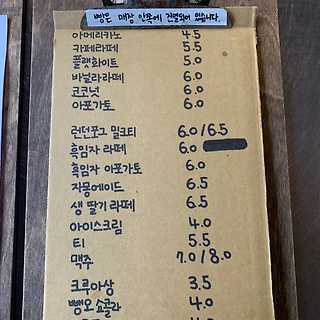 빵은 매장 안쪽에 진열되어 있습니다.
아메리카노 4.5
카페라떼 5.5
플랫화이트 5.0
바닐라라떼 6.0
코코넛 6.0
아포가토 6.0
런던포그 밀크티 6.0/6.5
흑임자 라떼 6.0
흑임자 아포가토 6.0
자몽에이드 6.5
생 딸기 라떼 6.5
아이스크림 4.0
티 5.5
맥주 7.0/8.0
크루아상 3.5
뺑오쇼콜라 4.0